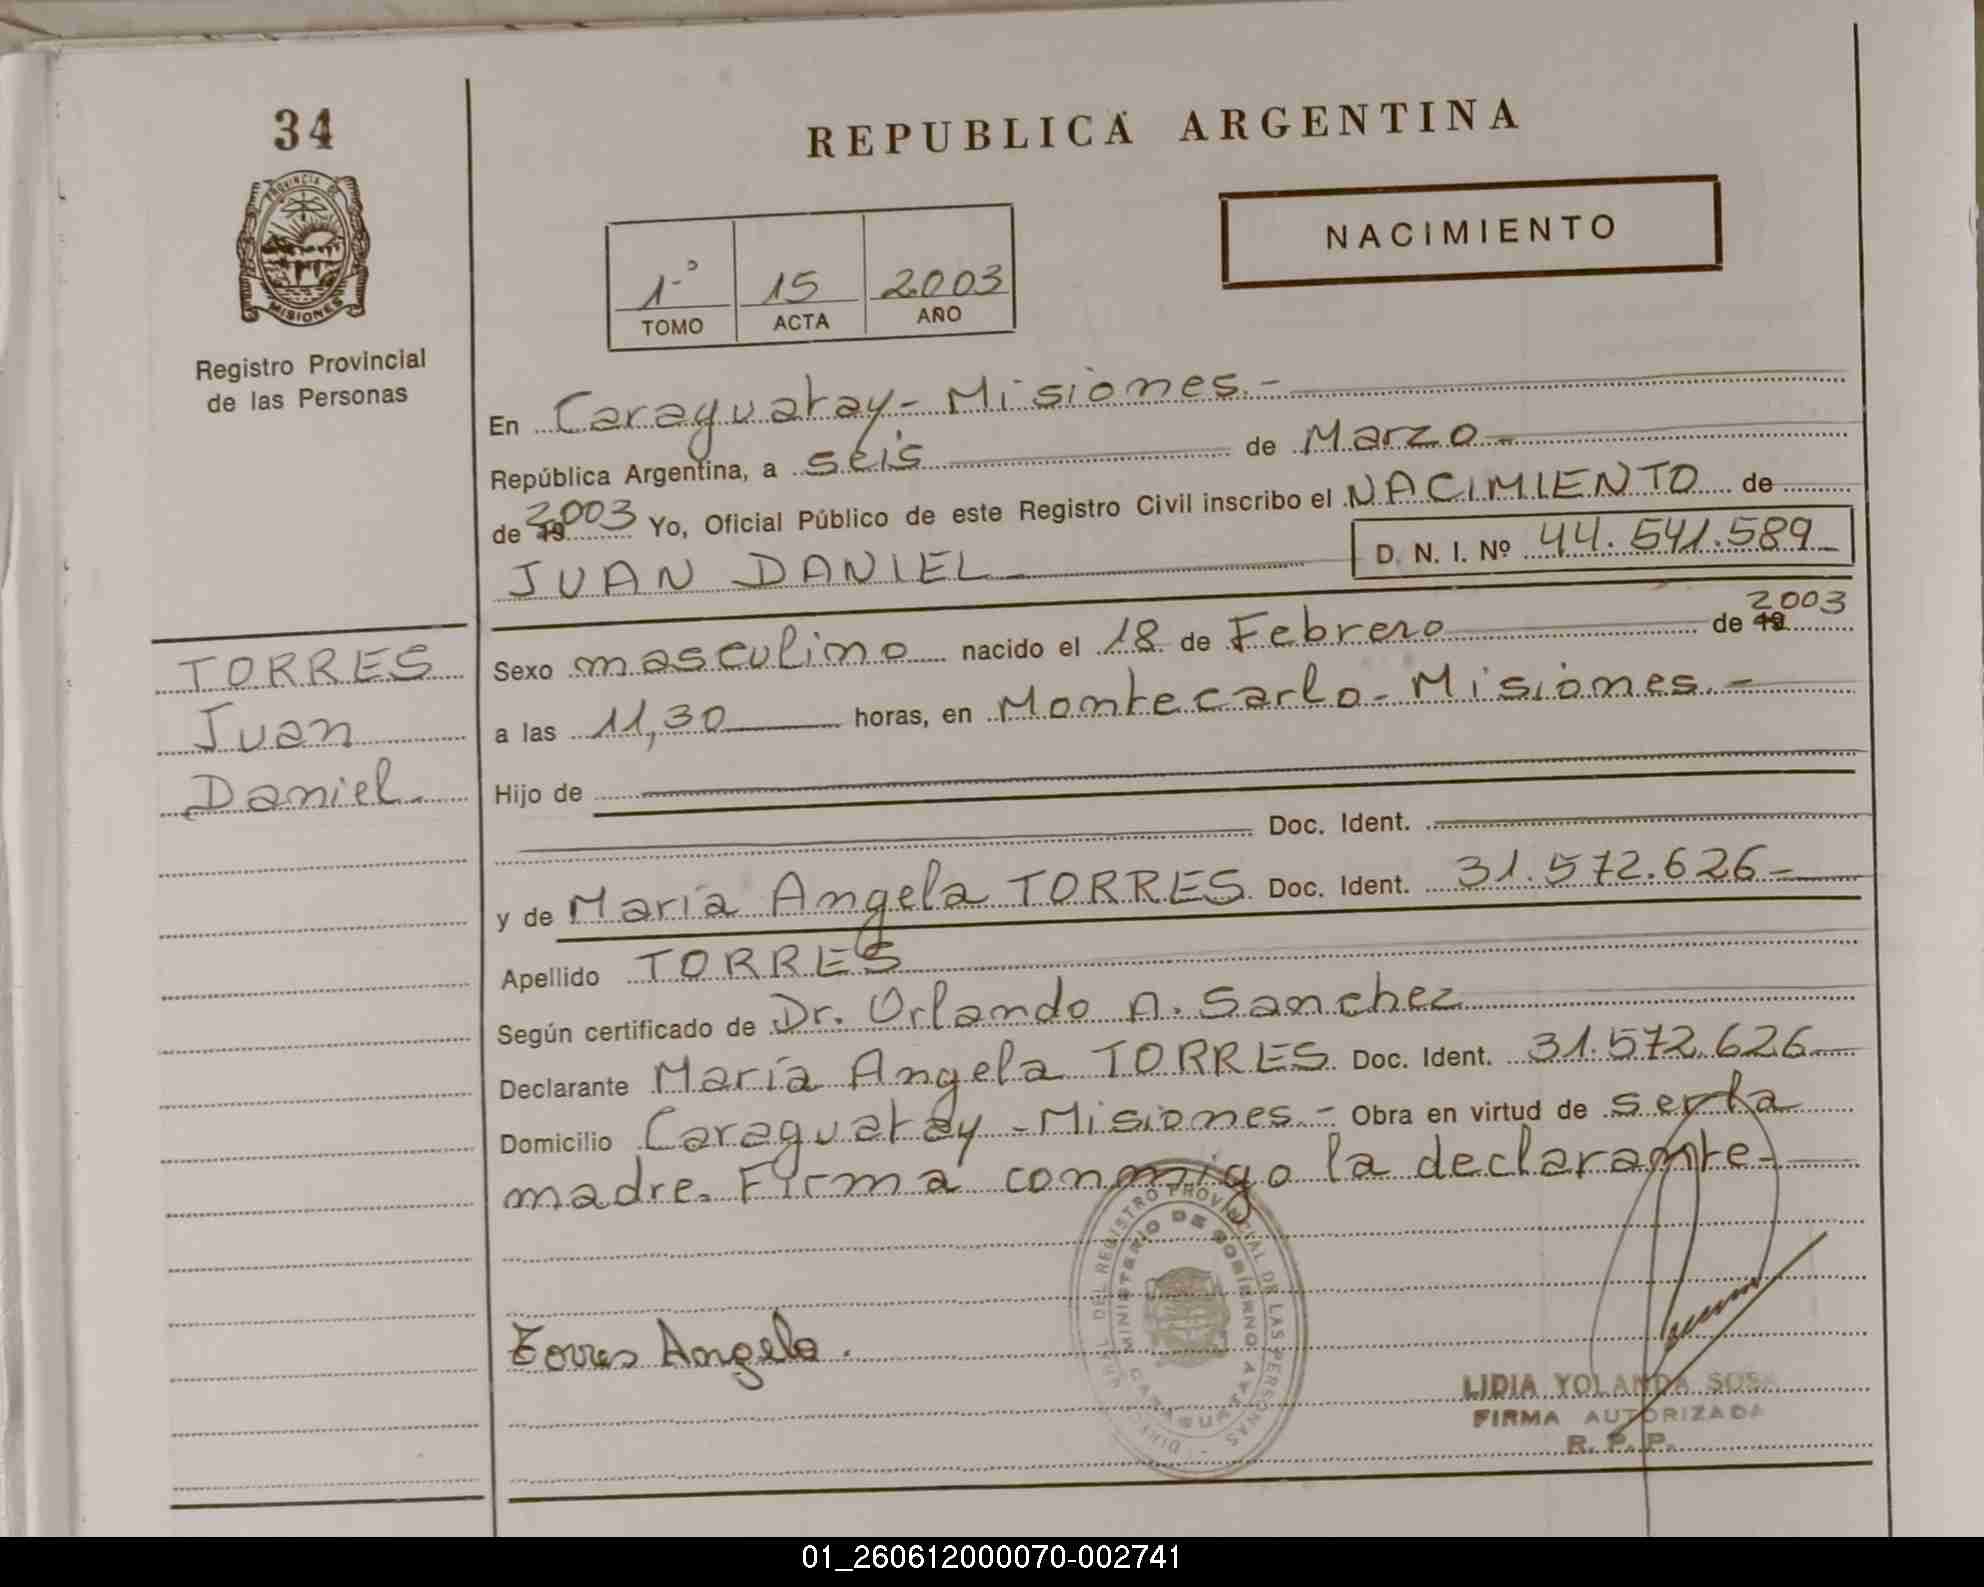 34
PROVINCIA DE
MISIONES
Registro Provincial
de las Personas
REPUBLICA ARGENTINA
NACIMIENTO
1º 15 2003
TOMO ACTA AÑO
En Caraguatay - Misiones.-
República Argentina, a seis de Marzo
de 19 2003 Yo, Oficial Público de este Registro Civil inscribo el NACIMIENTO de
JUAN DANIEL D. N. I. Nº 44.541.589
TORRES
Juan
Daniel.
Sexo masculino nacido el 18 de Febrero de 19 2003
a las 11,30 horas, en Montecarlo - Misiones.-
Hijo de
Doc. Ident.
y de María Angela TORRES Doc. Ident. 31.572.626
Apellido TORRES
Según certificado de Dr. Orlando A. Sanchez
Declarante María Angela TORRES Doc. Ident. 31.572.626
Domicilio Caraguatay - Misiones.- Obra en virtud de ser la
madre. Firma conmigo la declarante.
DEL REGISTRO PROVINCIAL DE LAS PERSONAS
MINISTERIO DE GOBIERNO
CARAGUATAY
Torres Angela.
LIDIA YOLANDA SOSA
FIRMA AUTORIZADA
R. P. P.
01_260612000070-002741